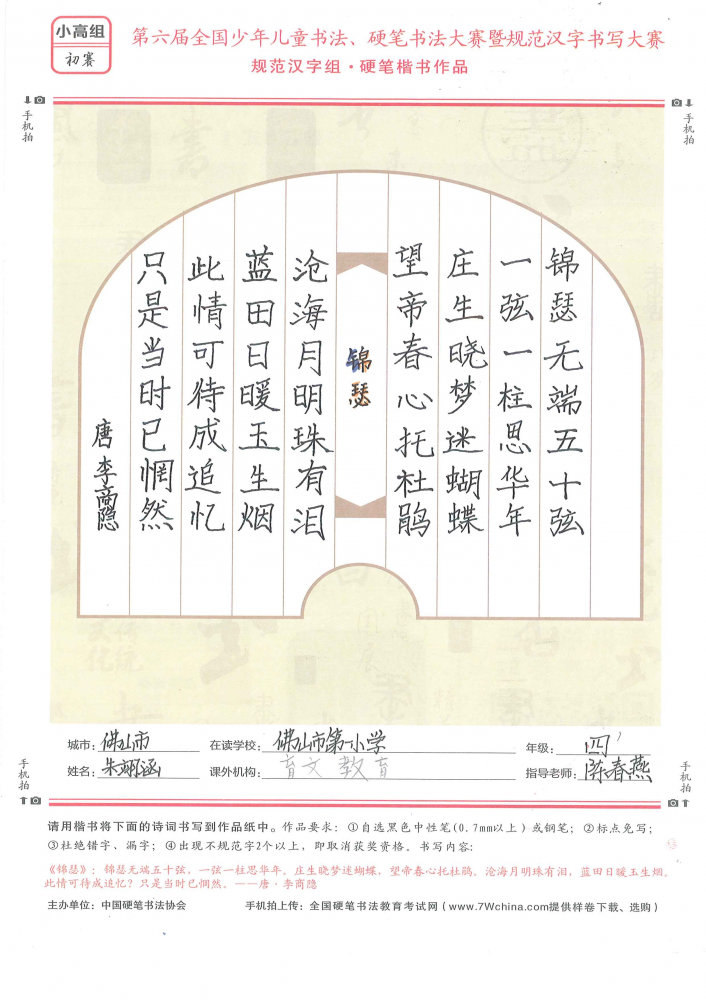 小高组
初赛
第六届全国少年儿童书法、硬笔书法大赛暨规范汉字书写大赛
规范汉字组·硬笔楷书作品
手机拍
手机拍
锦瑟无端五十弦
一弦一柱思华年
庄生晓梦迷蝴蝶
望帝春心托杜鹃
锦瑟
沧海月明珠有泪
蓝田日暖玉生烟
此情可待成追忆
只是当时已惘然
唐李商隐
城市：佛山市 在读学校：佛山市第一小学 年级：四
姓名：朱翊涵 课外机构：育文教育 指导老师：陈春燕
手机拍
手机拍
请用楷书将下面的诗词书写到作品纸中。作品要求：①自选黑色中性笔(0.7mm以上)或钢笔；②标点免写；
③杜绝错字、漏字；④出现不规范字2个以上，即取消获奖资格。书写内容：
《锦瑟》：锦瑟无端五十弦，一弦一柱思华年。庄生晓梦迷蝴蝶，望帝春心托杜鹃。沧海月明珠有泪，蓝田日暖玉生烟。
此情可待成追忆？只是当时已惘然。——唐·李商隐
主办单位：中国硬笔书法协会 手机拍上传：全国硬笔书法教育考试网（www.7Wchina.com提供样卷下载、选购）